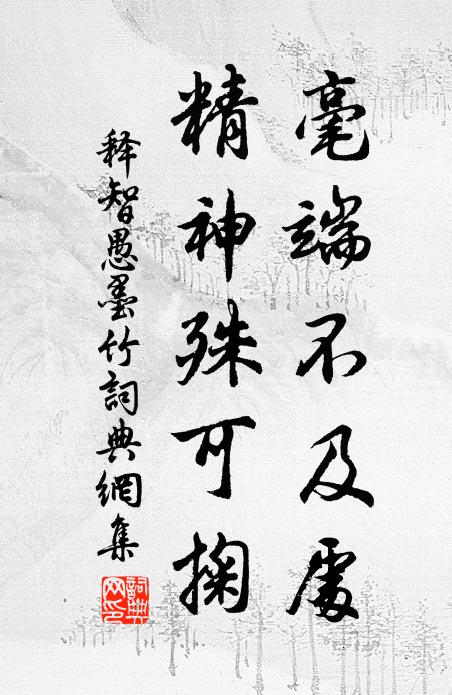 毫端不及處
精神殊可掬
釋智愚墨竹詞典網集
詞典網印